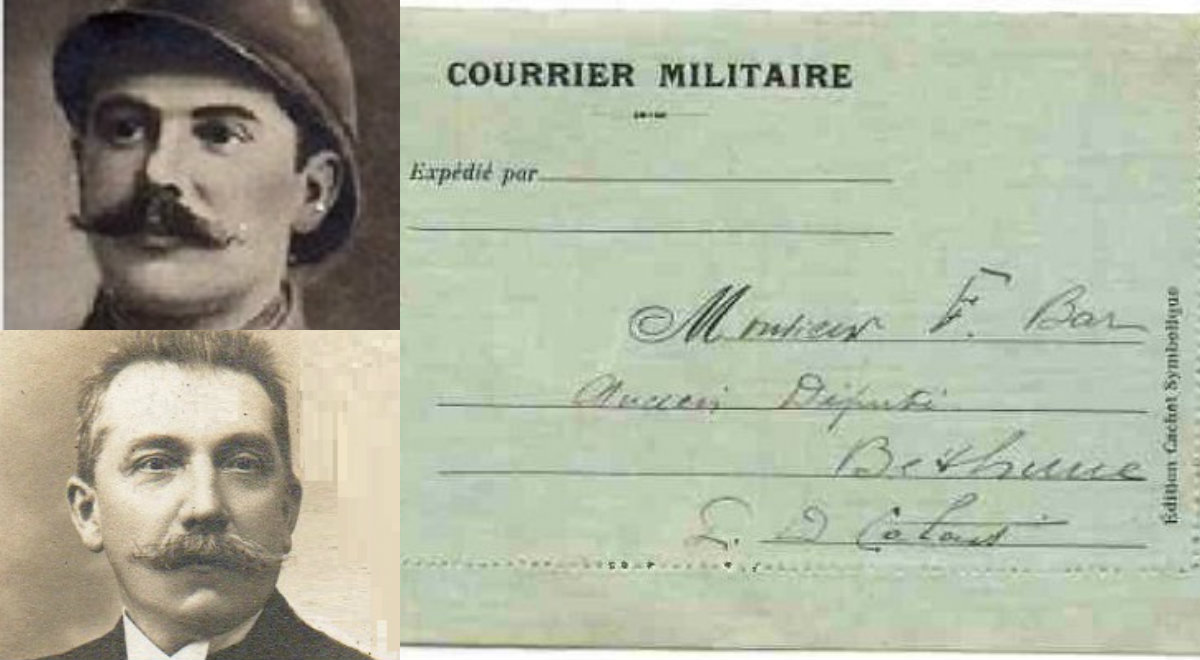 COURRIER MILITAIRE
Expédié par
Monsieur F. Bar
Ancien Député
Bethune
Edition Cachet Symbolique